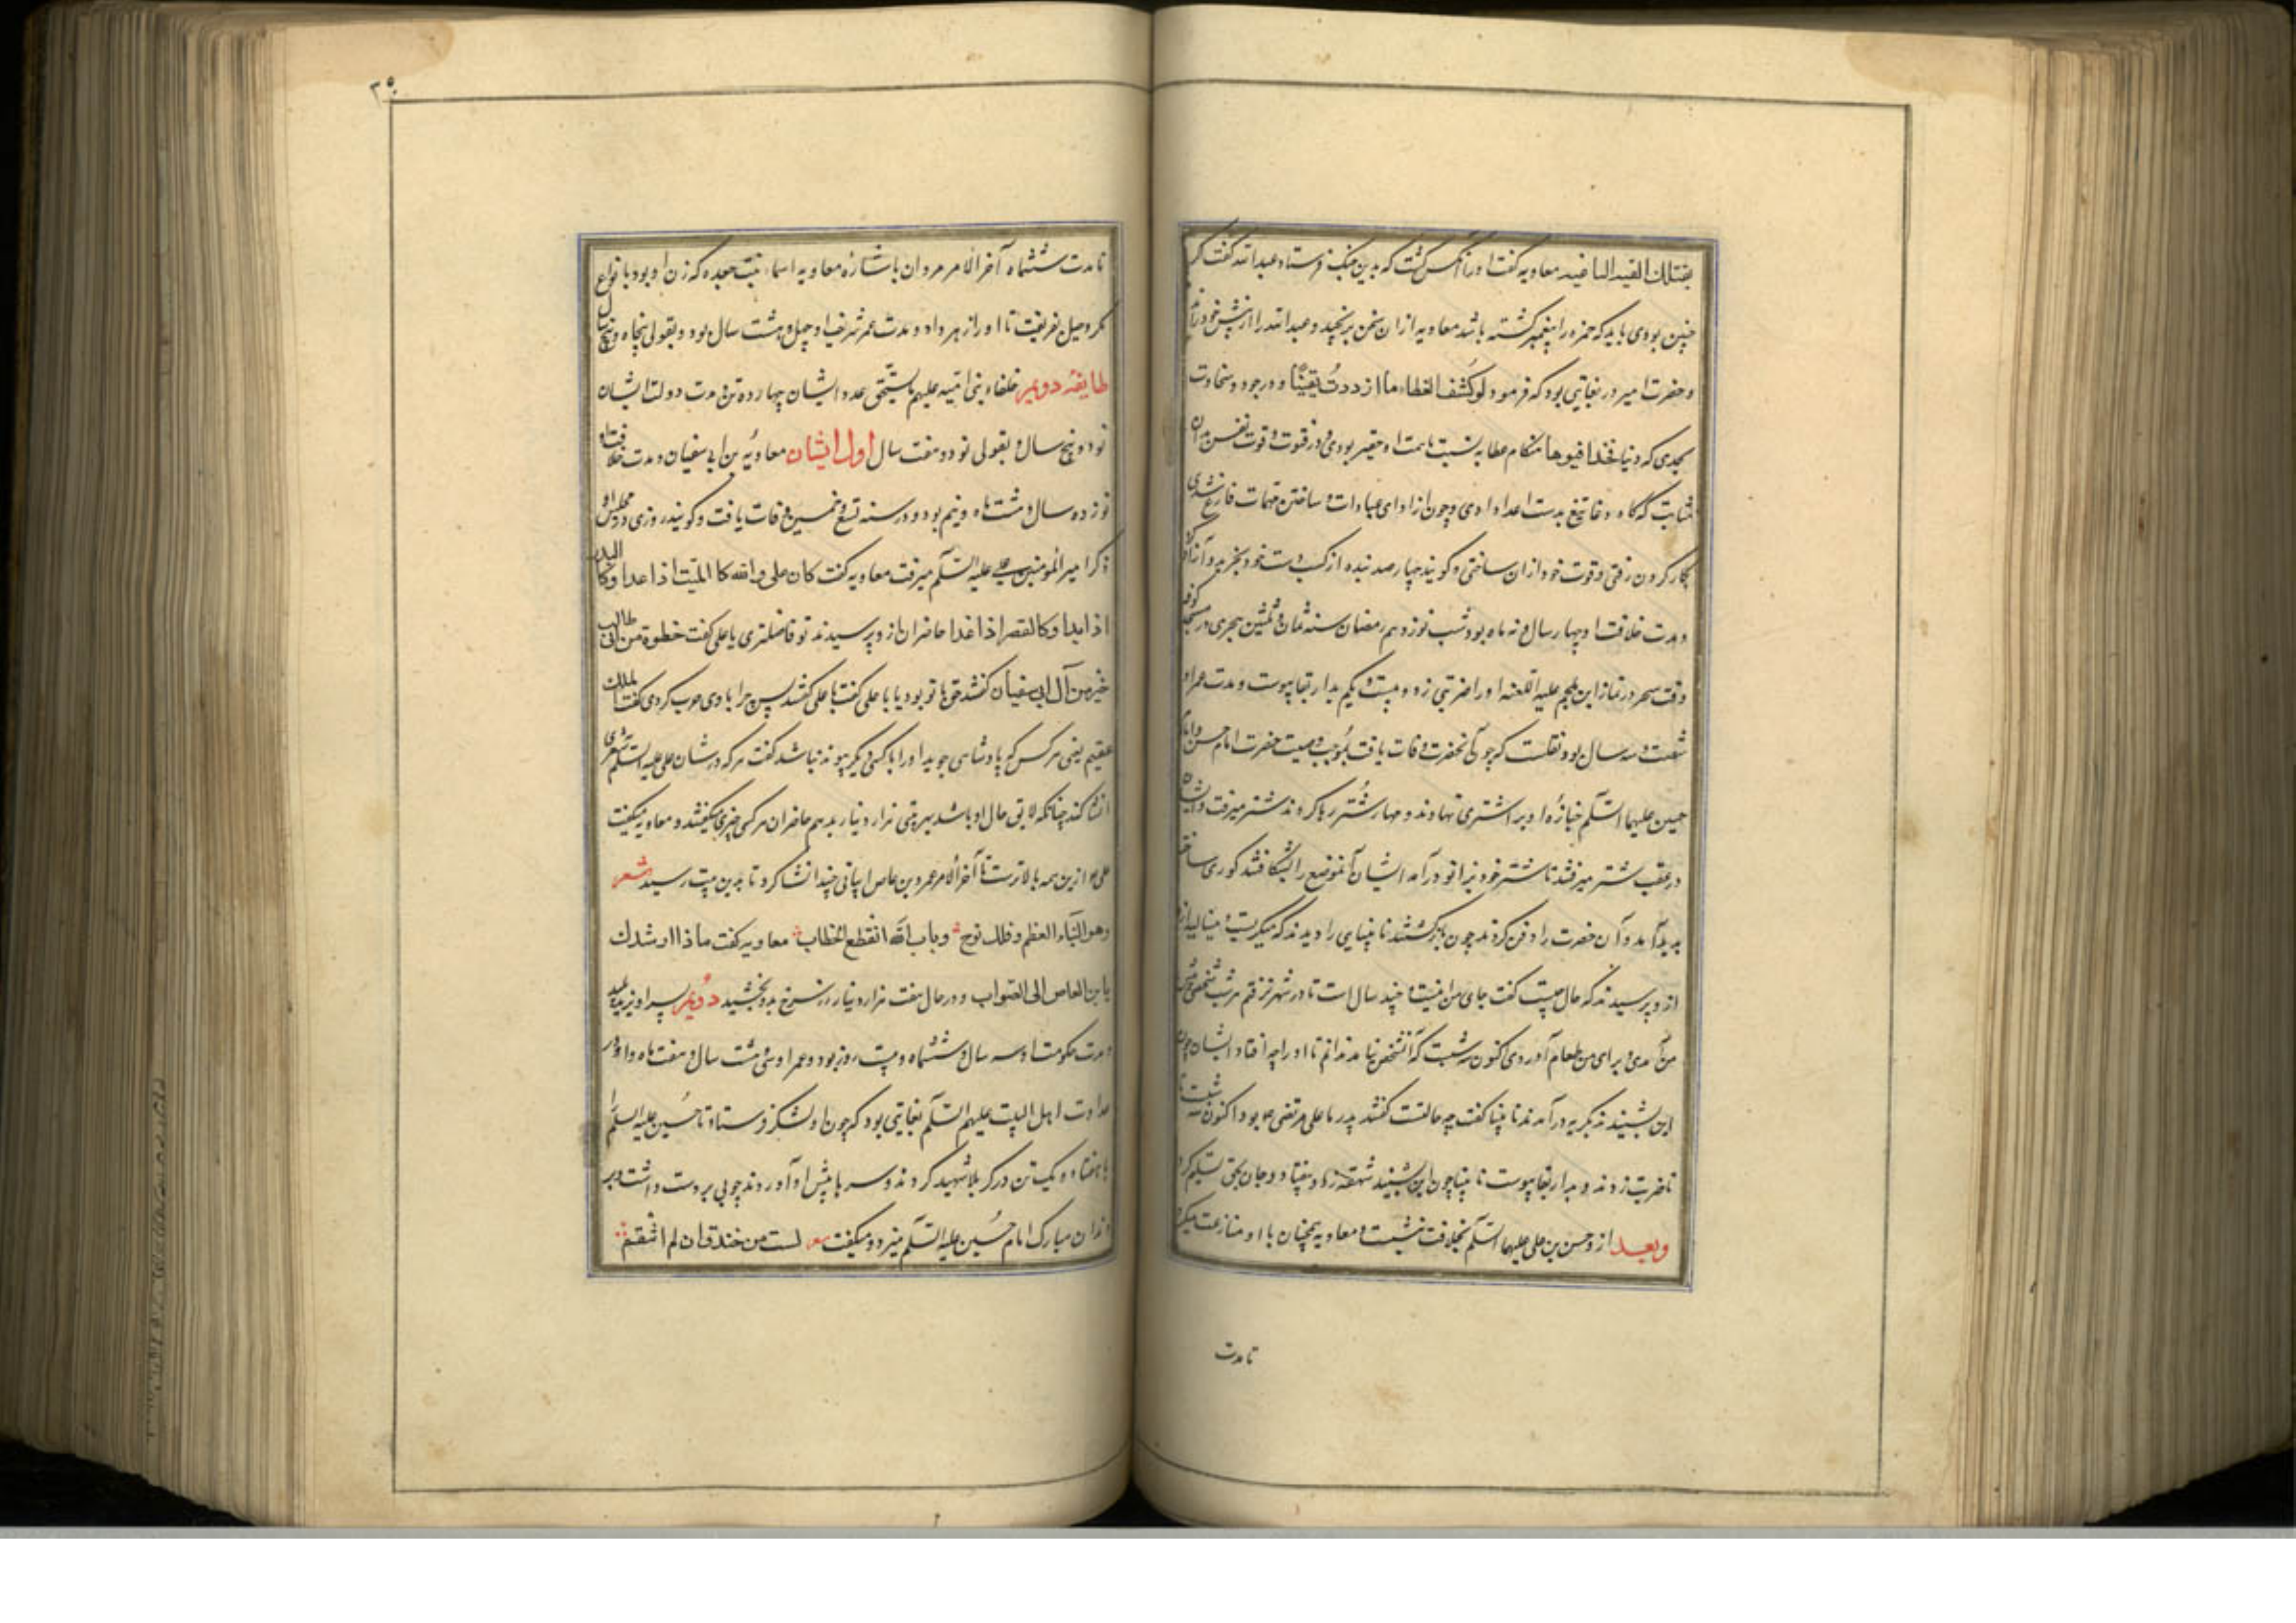 یقتلك الفیه الباغیه معاویه گفت او را آنکس کشت که بدین جنگ فرستاد عبدالله گفت اگر
چنین بودی باید که حمزه را پیغمبر کشته باشد معاویه ازان سخن برنجید و عبدالله را از پیش خود راند
و حضرت امیر در یغایتی بود که فرمود لو کُشف الغطاء ما ازددتُ یقینًا و در جود و سخاوت
بحدی که دنیا بهنگام عطا به نسبت همت او حقیر بودی و در فتوت و قوت نفس بدان
مثابت که گاه وغا تیغ بدست اعدا دادی و چون از ادای عبادات و ساختن مهمات فارغ شدی
بکار کردن رفتی و قوت خود ازان ساختی و گویند چهارصد بنده از کسب دست خود بخرید و آزاد کرد
و مدت خلافت او چهار سال و نه ماه بود شب نوزدهم رمضان سنه ثمان و ثلثین هجری در مسجد کوفه
وقت سحر در نماز ابن ملجم علیه اللعنه او را ضربتی زد و بیست و یکم بدار بقا پیوست و مدت عمر او
شصت و سه سال بود و نقلست که چون آنحضرت وفات یافت بموجب وصیت حضرت امام حسن و امام
حسین علیهما السّلم جنازهٔ او بر اشتری نهادند و مهار شُتر رها کردند شتر میرفت و ایشان
در عقب شتر میرفتند تا شتر خود بزانو درآمد ایشان آنموضع را بشکافتند گوری ساخته
پدید آمد و آن حضرت را دفن کردند چون بازگشتند نابینایی را دیدند که میگریست و مینالید
ازو پرسیدند که حال چیست گفت جای من اینست و چند سال است تا در شهر نرفتم هر شب شخصی پیش
من آمدی و برای من طعام آوردی اکنون سه شبست که آنشخص نیامد ندانم تا او را چه افتاد ایشان چون
این بشنیدند بگریه درآمدند نابینا گفت چه حالتست گفتند پدر ما علی مرتضی ع بود اکنون سه شبست تا
تا ضربت زدند و بدار بقا پیوست نابینا چون این بشنید شهقهٔ زد و بیفتاد و جان بحق تسلیم کرد
و بعد ازو حسن بن علی علیهما السّلم بخلافت نشست و معاویه همچنان با او منازعت میکرد
تا مدت
۳۵
تا مدت ششماه آخر الامر مروان باشارهٔ معاویه اسماء بنت جعده که زن او بود بانواع
مکر و حیل بفریفت تا او را زهر داد و مدت عمر شریف او چهل و هشت سال بود و بقولی پنجاه و پنج سال
طایفهٔ دویم خلفاء بنی امیّه علیهم ما یستحق عدد ایشان چهارده تن مدت دولت ایشان
نود و پنج سال و بقولی نود و هفت سال اول ایشان معاویه بن ابی سفیان مدت خلافت او
نوزده سال و هشت ماه و نیم بود و در سنه تسع و خمسین وفات یافت و گویند روزی در مجلس او
ذکر امیرالمؤمنین علی علیه السّلم میرفت معاویه گفت کان علی والله کا اللیث اذا عدا و کالبدر
اذا بدا و کالقصر اذا غدا حاضران ازو پرسیدند تو فاضلتری یا علی گفت خطوة من ابی طالب
خیر من آل ابی سفیان گفتند حق با تو بود یا با علی گفت با علی گفتند پس چرا با وی حرب کردی گفت الملك
عقیم یعنی هر کس که پادشاهی جوید او را با کسی دیگر پیوند نباشد گفت هر که در شان علی علیه السّلم شعری
انشا کند چنانکه لایق حال او باشد بهر بیتی هزار دینار بدهم حاضران هر کس چیزی میگفتند و معاویه میگفت
علی ع ازین همه بالاترست تا آخر الامر عمرو بن عاص ابیاتی چند انشا کرد تا بدین بیت رسید شعر
و هو النباء العظم و فلك نوح و باب الله انقطع الخطاب معاویه گفت ماذا ارشدك
یا بن العاص الی الصواب و در حال هفت هزار دینار زر سرخ بدو بخشید دُویم پسر او یزید پلید
مدت حکومت او سه سال و ششماه و بیست روز بود و عمر او سی و هشت سال و هفت ماه و او در
عداوت اهل البیت علیهم السّلم بغایتی بود که چون او لشکر فرستاد تا حُسین علیه السّلم را
با هفتاد و یک تن در کربلا شهید کردند و سرها پیش او آوردند چوبی بر دست داشت و بر
دندان مبارک امام حُسین علیه السّلم میزد و میگفت شعر لست من خندق ان لم انتقم